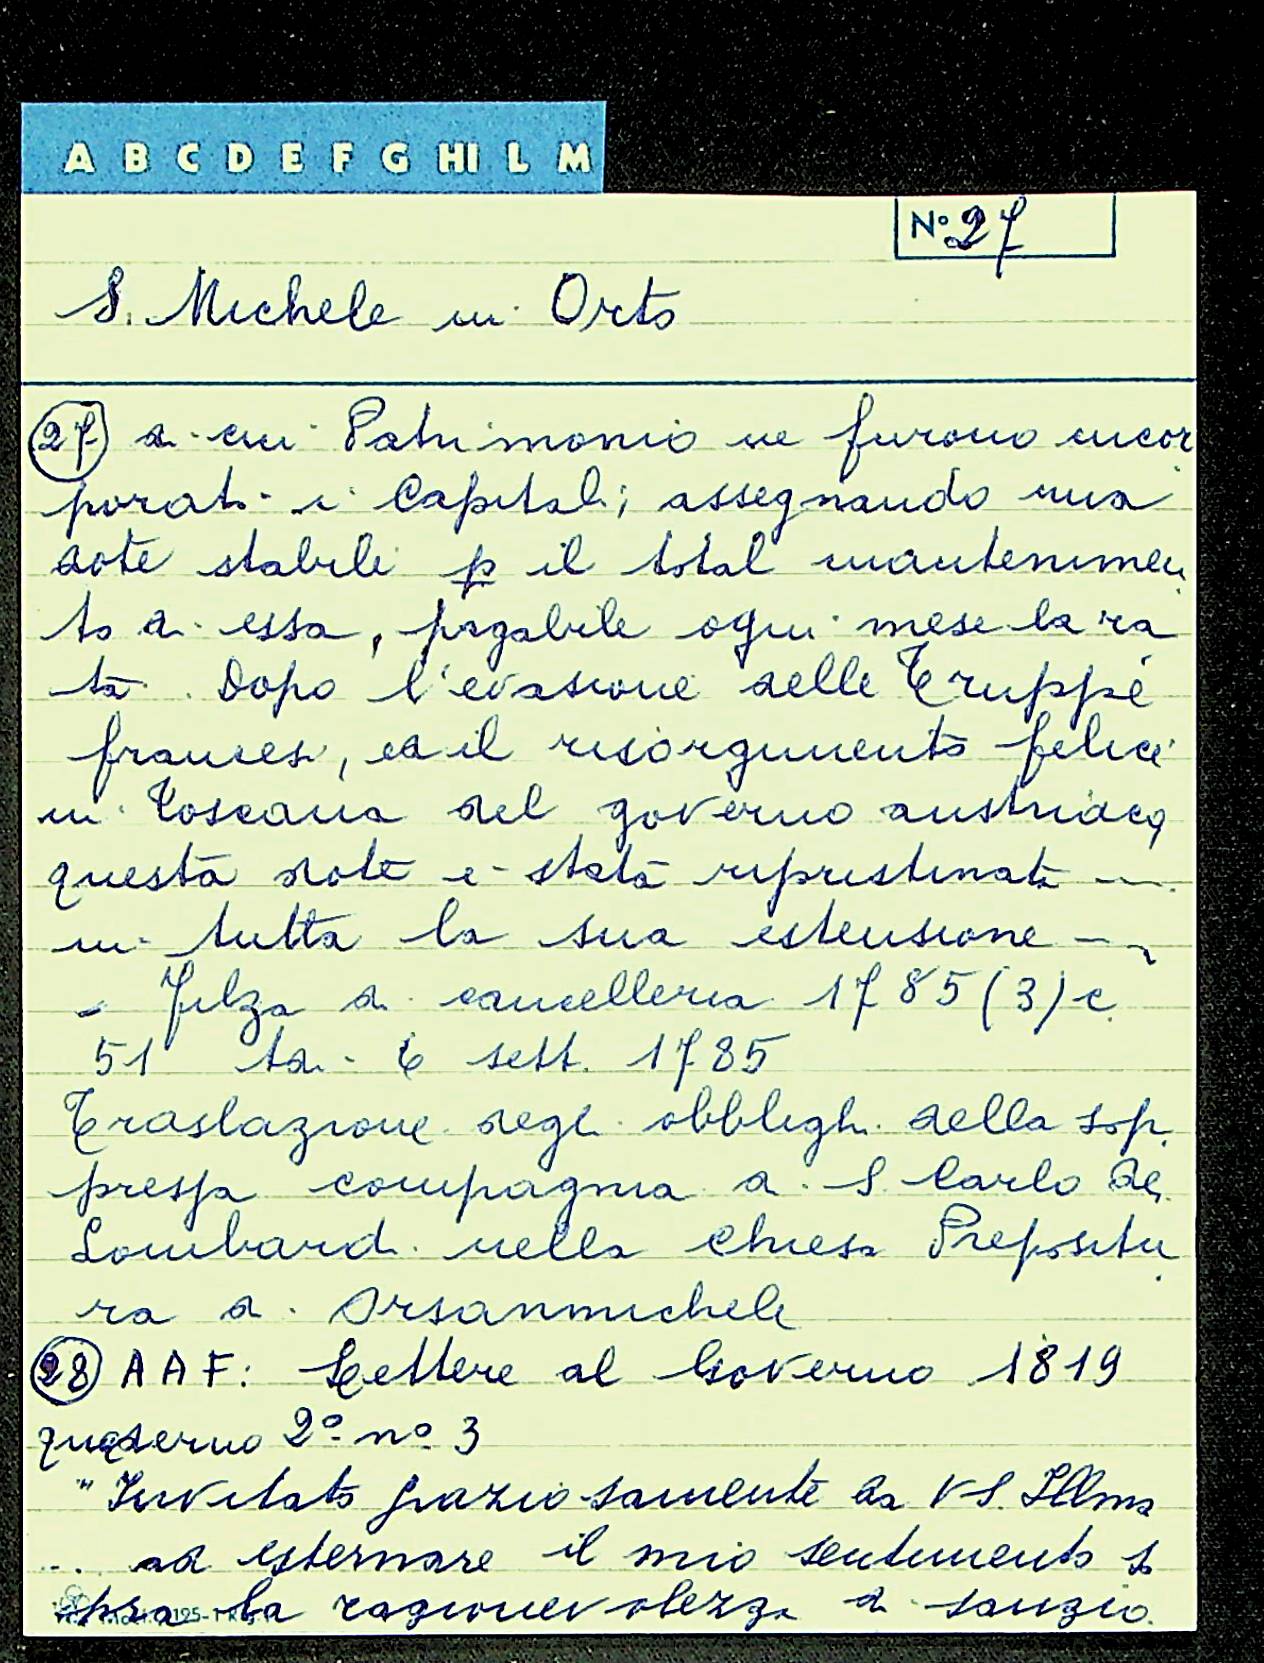 A B C D E F G HI L M
No. 27
S. Michele in Orto
27 a cui Patrimonio ne furono incor
porati i Capitali; assegnando una
dote stabile p il total mantenimen
to di essa, pagabile ogni mese la ra
ta. Dopo l'evasione delle Truppe
francesi, ed il risorgimento felice
in Toscana del governo austriaco
questa dote è stata ripristinata --
in tutta la sua estensione --
- Filza di cancelleria 1785 (3) c.
51 ta - 6 sett. 1785
Traslazione degli obblighi della sop
pressa compagnia di S. Carlo dei
Lombardi nella Chiesa Prepositu
ra di Orsanmichele
28 AAF: Lettere al Governo 1819
quaderno 2° n° 3
"Invitato graziosamente da VS. Illma
... ad esternare il mio sentimento so
pra la ragionevolezza di sanzio